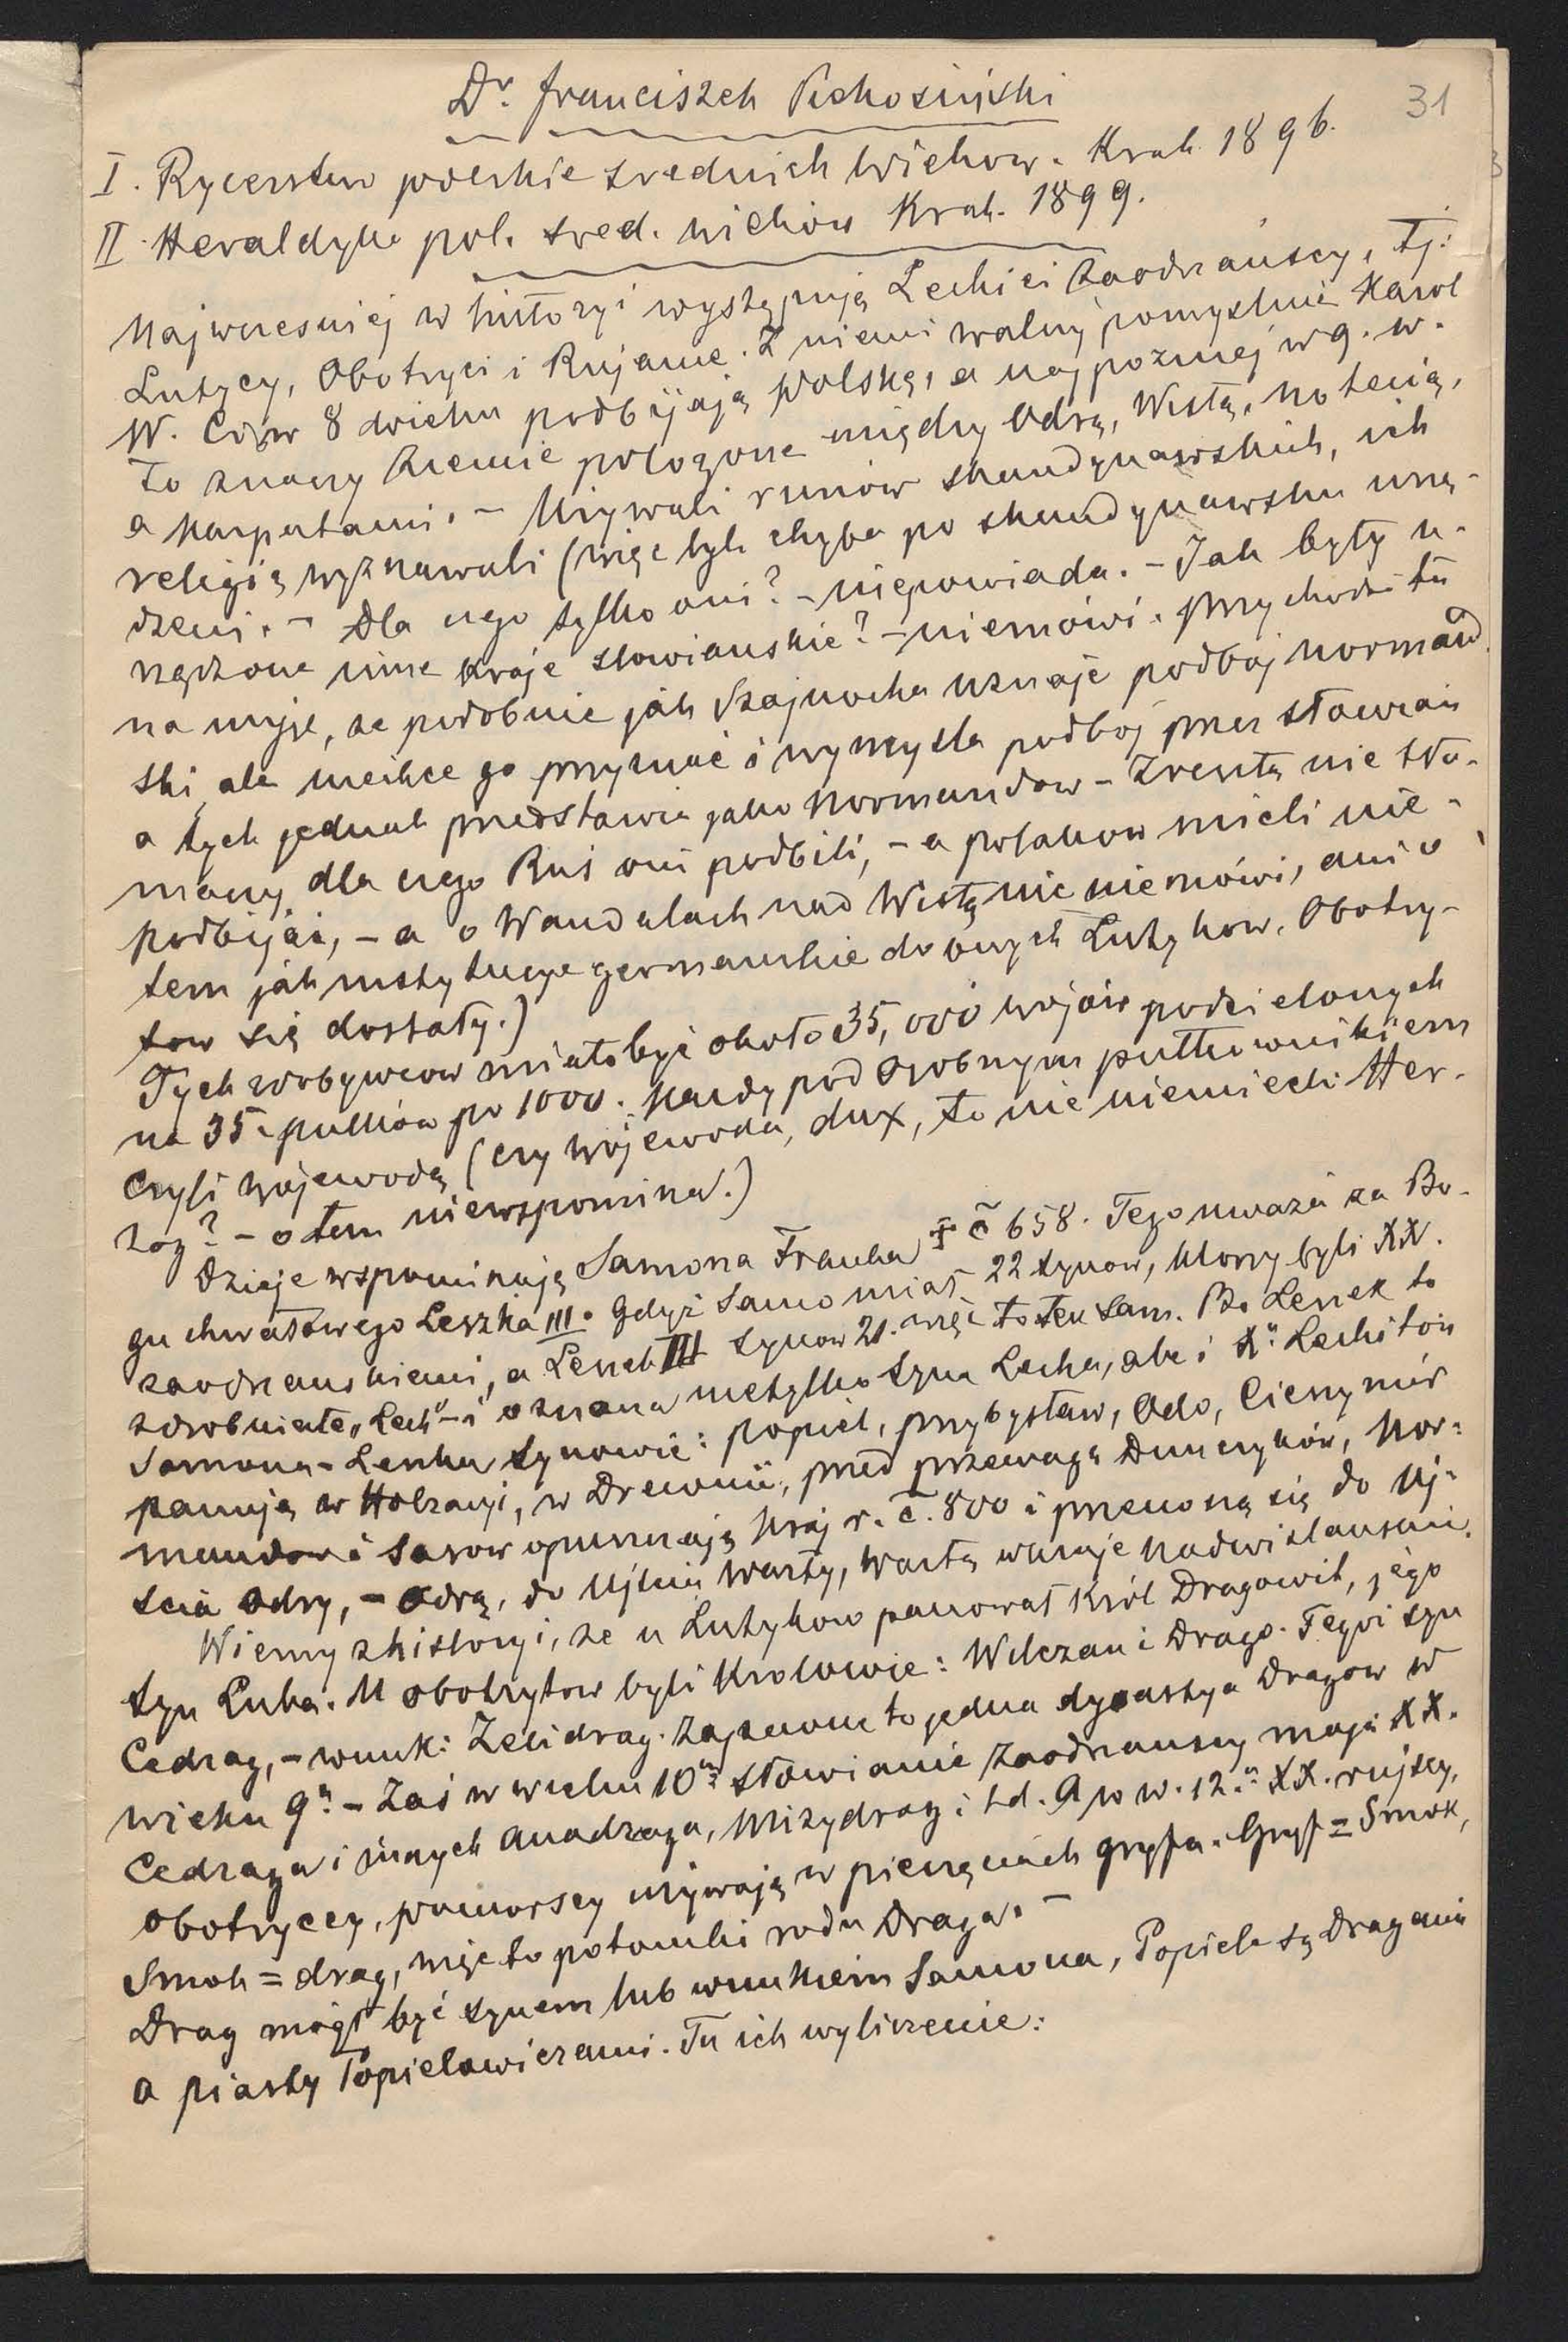 31
Dr. Franciszek Piekosiński
I. Rycerstwo polskie srednich wieków. Krak. 1896.
II. Heraldyka pol. sred. wieków Krak. 1899.
Najwcześniej w historyi występują Lechici zaodrzańscy, tj.
Lutycy, Obotryci i Rujanie. Z niemi walczy pomyślnie Karol
W. Ciż w 8 wieku podbijają Polskę, a najpozniej w 9. w.
to znaczy ziemie położone między Odrą, Wisłą, Notecią,
a Karpatami. – Używali runów skandynawskich, ich
religię wyznawali (więc byli chyba po skandynawsku urzą-
dzeni. – Dla czego tylko oni? – niepowiada. – Jak były u-
rządzone inne kraje słowiańskie? – niemówi. Przychodzi tu
na myśl, że podobnie jak Szajnocha uznaje podbój normand
ski, ale niechce go przyznać i wymyśla podbój przez słowian
a tych jednak przedstawia jako Normandow – Zresztą nie tło-
maczy, dla czego Ruś oni podbili, – a polakow mieli nie-
podbijać, – a o Wandalach nad Wisłą nic nie mówi, ani o
tem jak instytucye germańskie do owych Lutykow, Obotry-
tow się dostały.)
Tych zdobywcow miało być około 35,000 wojów podzielonych
na 35. pułków po 1000. Każdy pod osobnym pułkownikiem
czyli wojewodą (czy wojewoda, dux, to nie niemiecki Her-
zog? – o tem niewspomina.)
Dzieje wspominają Samona Franka † č 658. Tego uważa za Bo-
gu chwałowego Leszka III. Gdyż Samo miał 22 synow, ktorzy byli XX.
zaodrzanskiemi, a Leszek III synow 21. więc to ten sam. Bo Leszek to
zdrobniałe „Lech” – i oznacza nietylko syna Lecha, ale i Xa Lechitow
Samona-Leszka synowie: Popiel, Przybysław, Odo, Cieszymir
panują w Holzacyi, w Drewnii, przed przewagą Dunczyków, Nor-
mandow i Sasow opuszczają kraj r. č. 800 i przenoszą się do Uj-
scia Odry, – Odrą, do Ujscia Warty, Wartą w kraje nadwislanskie.
Wiemy z historyi, że u Lutykow panował Król Dragowit, jego
syn Luba. U obotrytow byli Krolowie: Wilczan i Drago. Tegoi syn
Cedrag, – wnuk: Zelidrag. Zapewne to jedna dynastya Dragow w
wieku 9m – Zaś w wieku 10m słowianie zaodrzanscy mają XX.
Cedraga i innych Anadraga, Mizydrag i td. A po w. 12m XX. rujscy,
obotryccy, pomorscy używają w pieczęciach gryfa. Gryf = Smok,
Smok = drag, więc to potomki rodu Draga. –
Drag mógł być synem lub wnukiem Samona, Popiele są Dragami
a piasty Popielowiczami. Tu ich wyliczenie: